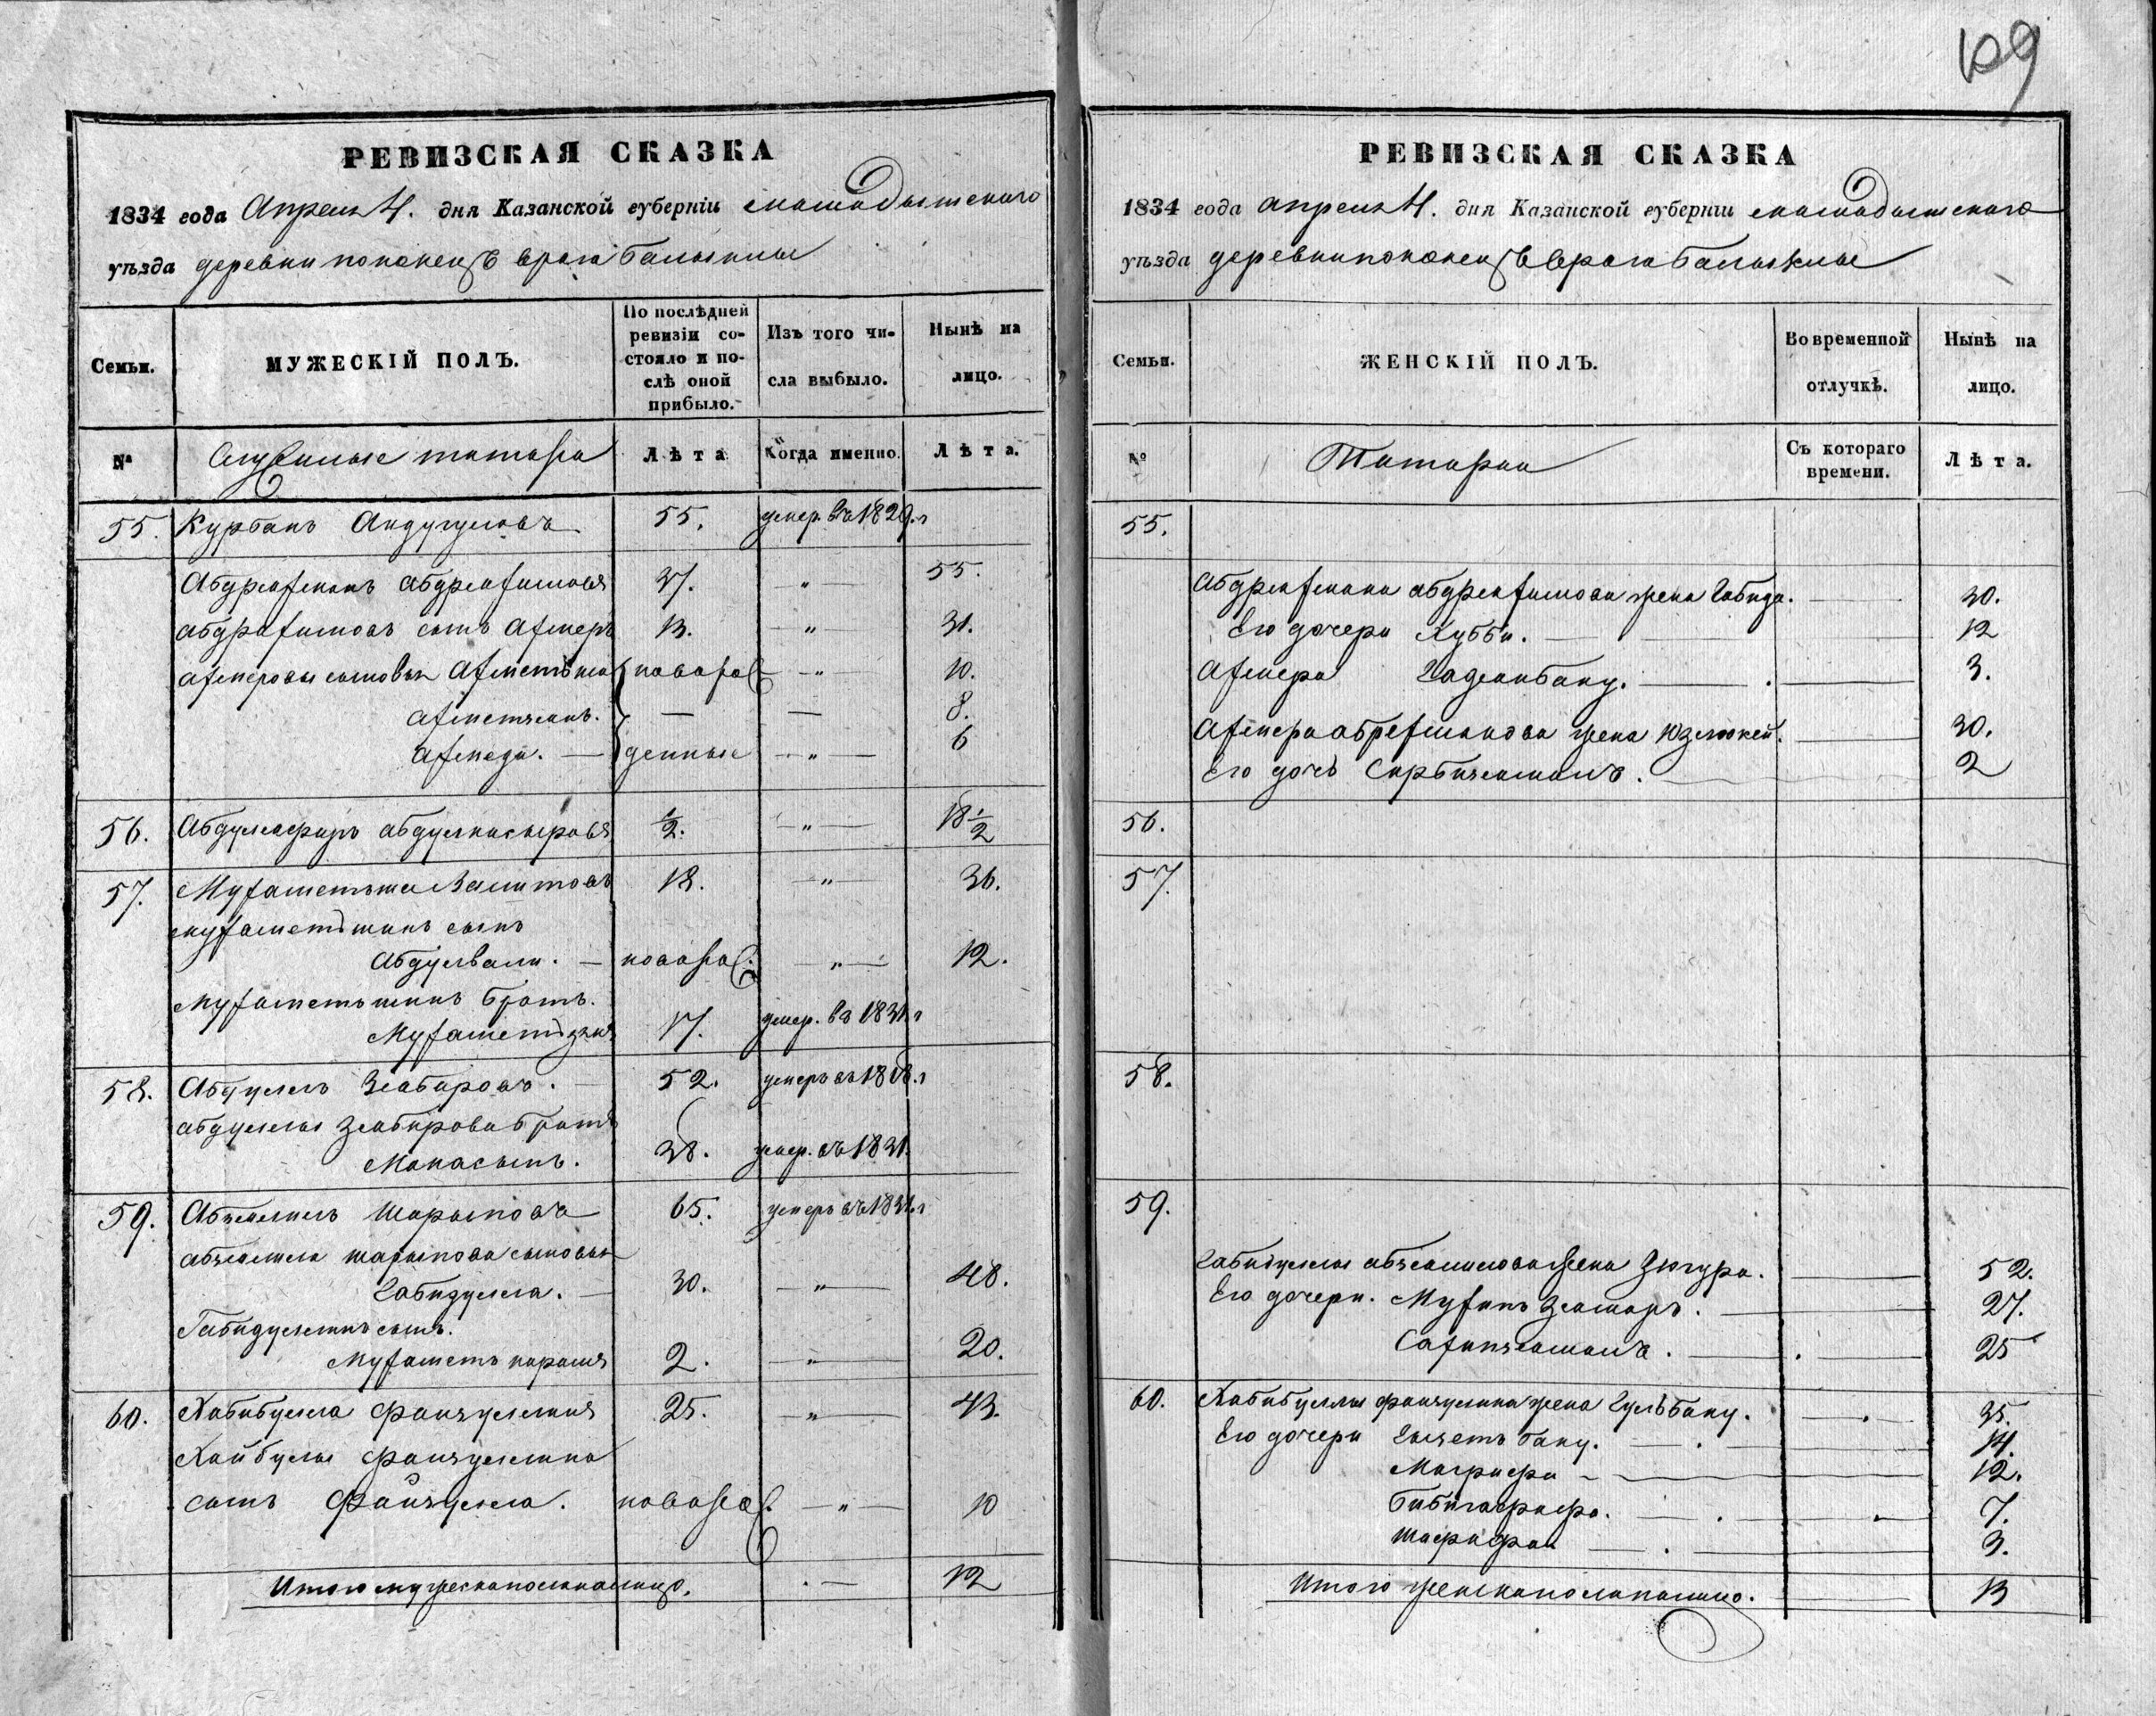 109
РЕВИЗСКАЯ СКАЗКА
1834 года Апреля 4. дня Казанской губерніи Мамадышскаго
уѣзда деревни поконецъ врага Балыклы
Семьи.
МУЖЕСКІЙ ПОЛЪ.
По послѣдней ревизіи состояло и послѣ оной прибыло.
Изъ того числа выбыло.
Нынѣ на лицо.
№
Служилые татара
Лѣта
Когда именно.
Лѣта.
55. Курбанъ Андугуловъ 55. умер. въ 1829. г
Абдрахманъ абдрахимовъ 37. — " — 55.
абдрахимовъ сынъ Ахмеръ 13. — " — 31.
ахмеровы сыновья Ахметьша новорож — " — 10.
ахметжанъ. — — 8.
ахмеди. — денные — " — 6
56. Абдулгафаръ абдулнасыровъ 1/2. — " — 18 1/2
57. Мухаметьша Валитовъ 18. — " — 36.
мухаметьшинъ сынъ
Абдулвали. — новорож. — " — 12.
Мухаметьшинъ братъ.
Мухаметьзянъ 17. умер. въ 1831. г
58. Абдуллъ Забировъ. — 52. умеръ въ 1818. г
абдуллы Забирова братъ
Манасыпъ. 28. умер. въ 1831.
59. Абзялилъ Шарыповъ 65. умеръ въ 1831. г
абзялила шарыпова сыновья
Габидулла. — 30. — " — 48.
Габидуллинъ сынъ.
Мухаметь каримъ 2. — " — 20.
60. Хабибулла Файзуллинъ 25. — " — 43.
Хайбуллы Файзуллина
сынъ Файзулла. новорож. — " — 10
Итого мужеска пола налицо. . — 12
РЕВИЗСКАЯ СКАЗКА
1834 года апреля 4. дня Казанской губерніи мамадышскаго
уѣзда деревни поконецъ врага Балыклы
Семьи.
ЖЕНСКІЙ ПОЛЪ.
Во временной отлучкѣ.
Нынѣ на лицо.
№
Татарки
Съ котораго времени.
Лѣта.
55.
Абдрахмана абдрахимова жена Габида. — 30.
Его дочери Хубби. — 12
Ахмера Бадеанбану. — 3.
Ахмера абрехманова жена Юзлюкей. — 30.
Его дочь Сарбижамалъ. 2
56.
57.
58.
59.
Габидуллы абзялилова жена Зюгура. — 52.
Его дочери. Мухинъ Замалъ. — 27.
Сахипжамалъ. — . — 25
60. Хабибуллы файзуллина жена Гульбану. — . — 35.
Его дочери Гызетъ бану. — . — 14.
Магрифи — 12.
Бибигафифа. — . — . — 7.
Шарифа — . — 3.
Итого женска пола налицо. — 13